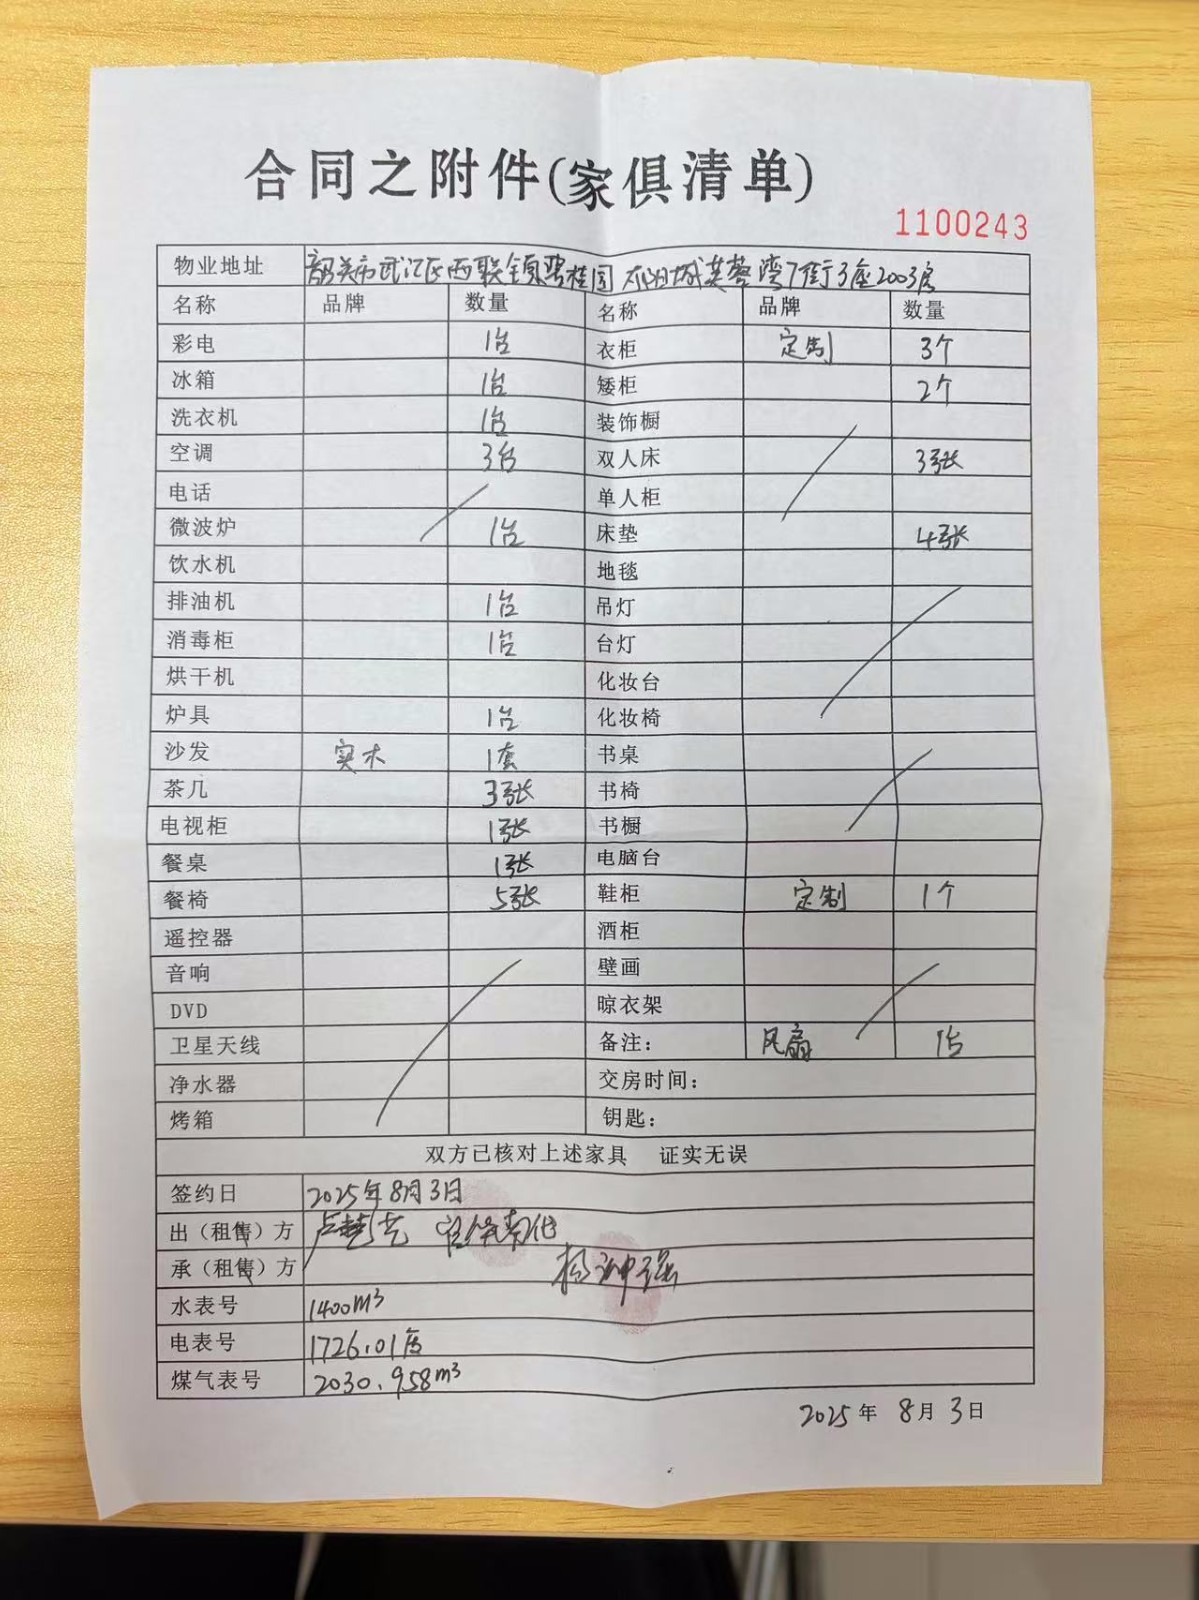 合同之附件(家俱清单)
1100243
物业地址 韶关市武江区西联镇碧桂园太阳城芙蓉湾7街3座2003房
名称 品牌 数量 名称 品牌 数量
彩电 1台 衣柜 定制 3个
冰箱 1台 矮柜 2个
洗衣机 1台 装饰橱
空调 3台 双人床 3张
电话 单人柜
微波炉 1台 床垫 4张
饮水机 地毯
排油机 1台 吊灯
消毒柜 1台 台灯
烘干机 化妆台
炉具 1台 化妆椅
沙发 实木 1套 书桌
茶几 3张 书椅
电视柜 1张 书橱
餐桌 1张 电脑台
餐椅 5张 鞋柜 定制 1个
遥控器 酒柜
音响 壁画
DVD 晾衣架
卫星天线 备注: 风扇 1台
净水器 交房时间:
烤箱 钥匙:
双方已核对上述家具 证实无误
签约日 2025年8月3日
出(租售)方
承(租售)方
水表号 1400m³
电表号 1726.01度
煤气表号 2030.958m³
2025年 8月 3日